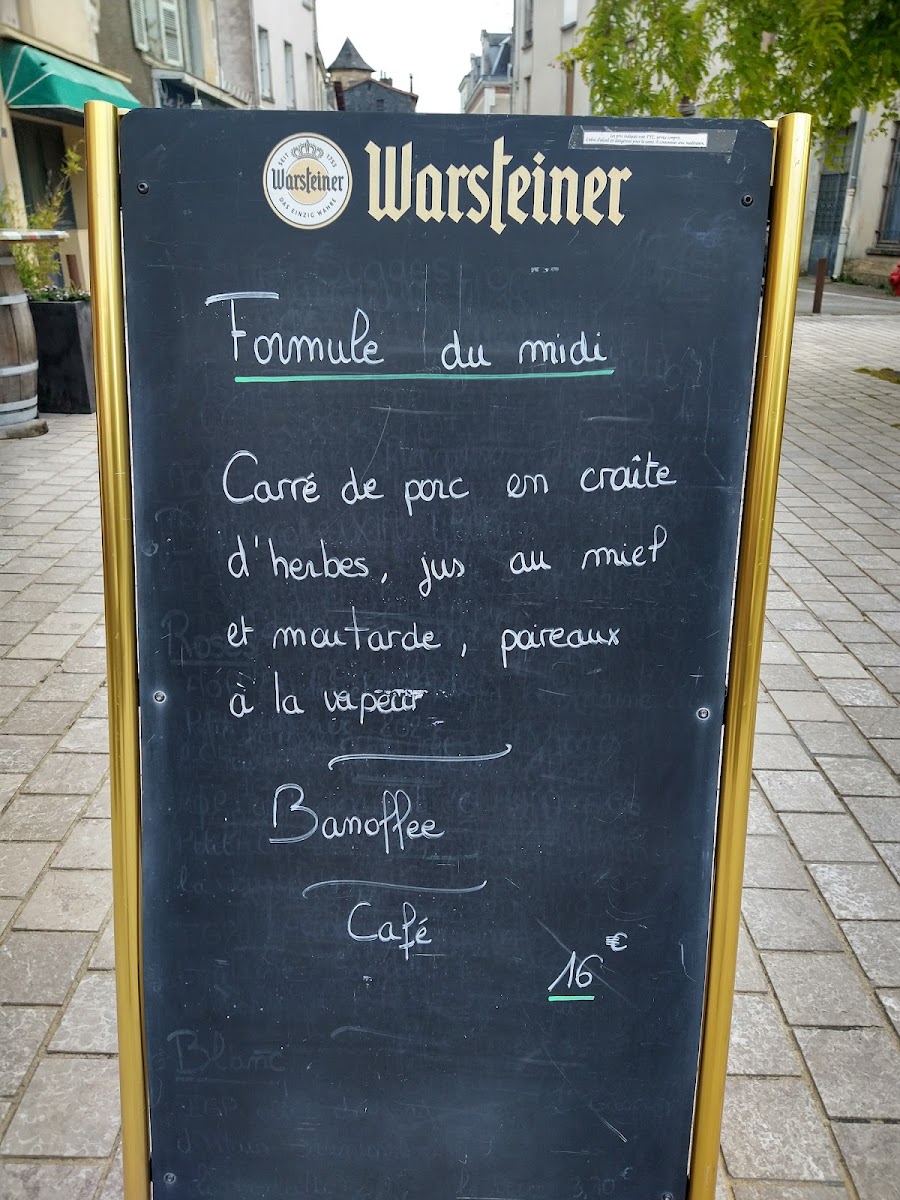 SEIT 1753
Warsteiner
DAS EINZIG WAHRE
Warsteiner
Formule du midi
Carré de porc en craîte
d'herbes, jus au miel
et moutarde, poireaux
à la vapeur
Banoffee
Café
16 €
Blanc
3,70 €